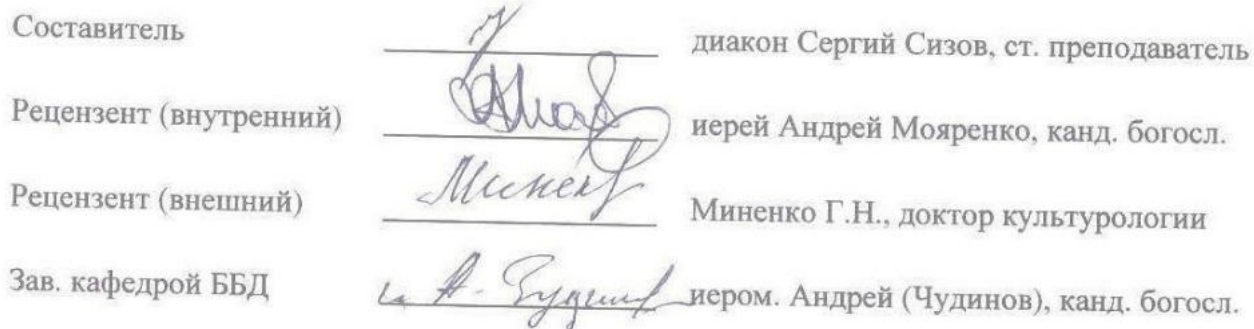 Составитель диакон Сергий Сизов, ст. преподаватель
Рецензент (внутренний) иерей Андрей Мояренко, канд. богосл.
Рецензент (внешний) Миненко Г.Н., доктор культурологии
Зав. кафедрой ББД иером. Андрей (Чудинов), канд. богосл.